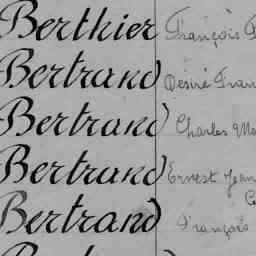 Berthier François
Bertrand Désiré Fran
Bertrand Charles Ma
Bertrand Ernest Jean
Bertrand François